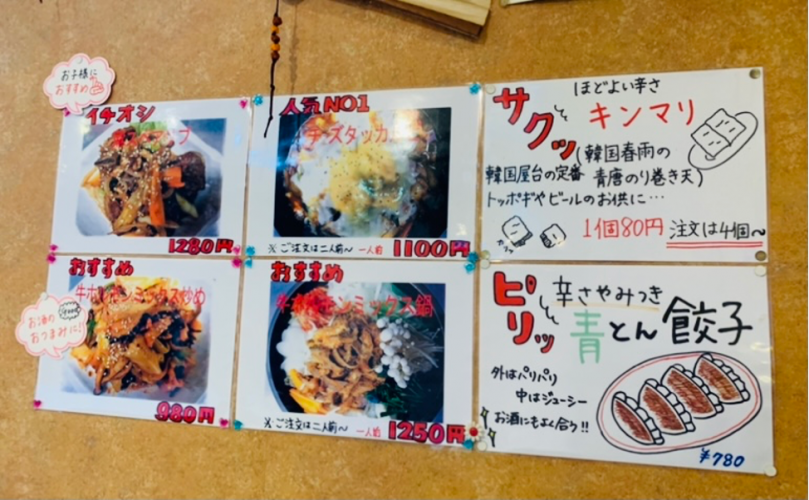 お子様に
おすすめ
イチオシ
1280円
人気NO1
チーズタッカルビ
※ご注文は二人前〜 一人前 1100円
おすすめ
牛ホルモンミックス炒め
お酒の
おつまみに!
980円
おすすめ
牛ホルモンミックス鍋
※ご注文は二人前〜 一人前 1250円
ほどよい辛さ
サクッ キンマリ
(韓国春雨の
韓国屋台の定番 青唐のり巻き天)
トッポギやビールのお供に…
1個80円 注文は4個〜
ピリッ
辛さやみつき
青とん餃子
外はパリパリ
中はジューシー
お酒にもよく合う!!
¥780